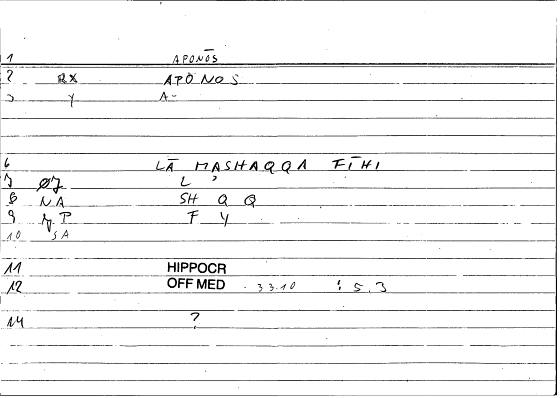 1 APONŌS
2 RX APONOS
3 Y A-
6 LĀ MASHAQQA FĪHI
7 ØJ L ʾ
8 NA SH Q Q
9 P F Y
10 SA
11 HIPPOCR
12 OFF MED 33.10 : 5.3
14 ?